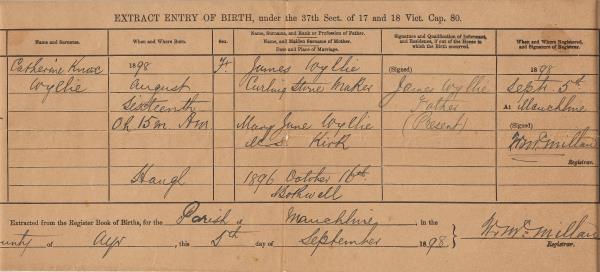 EXTRACT ENTRY OF BIRTH, under the 37th Sect. of 17 and 18 Vict. Cap. 80.
Name and Surname.
When and Where Born.
Sex.
Name, Surname, and Rank or Profession of Father.
Name, and Maiden Surname of Mother.
Date and Place of Marriage.
Signature and Qualification of Informant, and Residence, if out of the House in which the Birth occurred.
When and Where Registered, and Signature of Registrar.
Catherine Knox
Wyllie
1898
August
Sixteenth
0h 15m AM
Haugh
F.
James Wyllie
Curling Stone Maker
Mary Jane Wyllie
M.S. Kirk
1896 October 16th
Bothwell
(Signed)
James Wyllie
Father
(Present)
1898
Septr. 5th
At Mauchline
(Signed)
Wm McMillan
Registrar.
Extracted from the Register Book of Births, for the Parish of Mauchline, in the
unty of Ayr, this 5th day of September 1898.
Wm McMillan
Registrar.